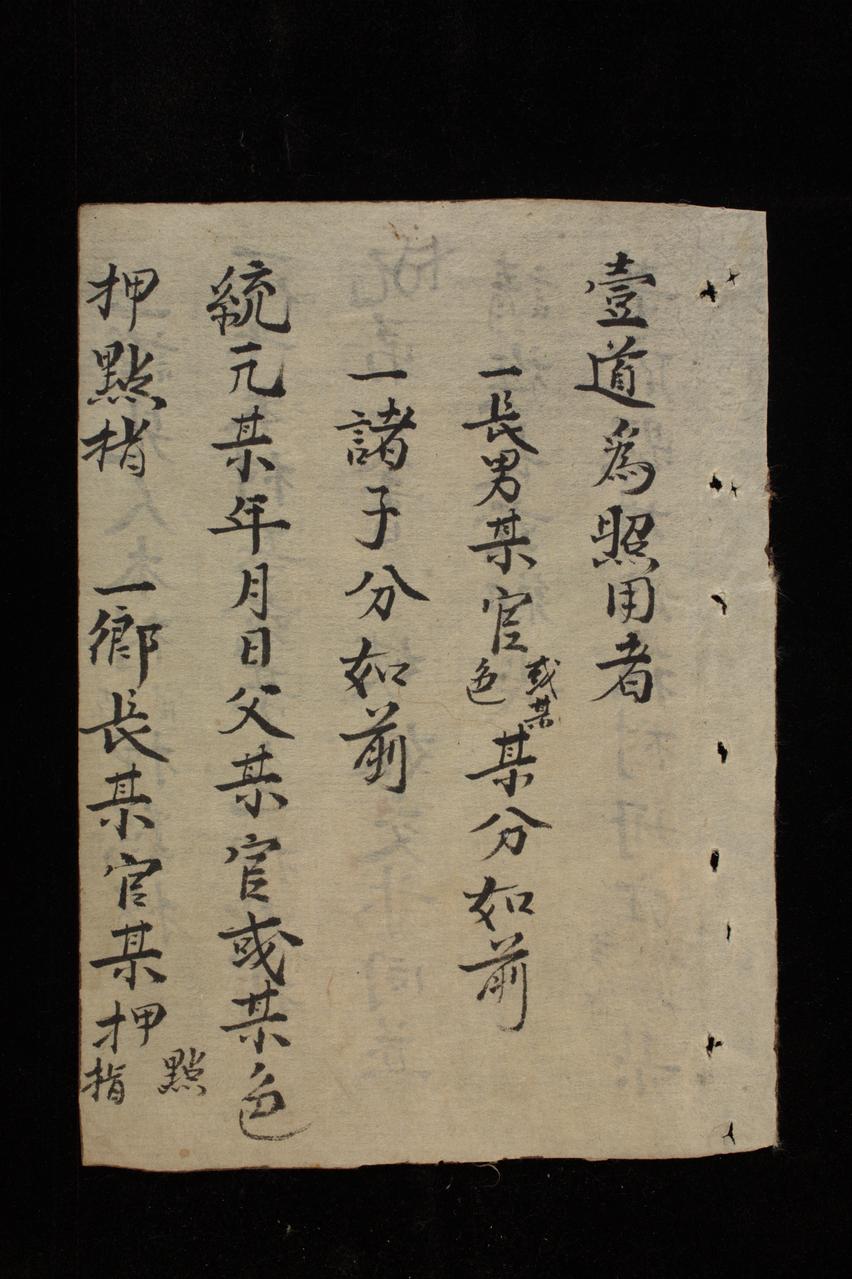 壹道為照用者
一長男某官或某色某分如前
一諸子分如前
統元某年月日父某官或某色
押點指 一鄉長某官某押點指